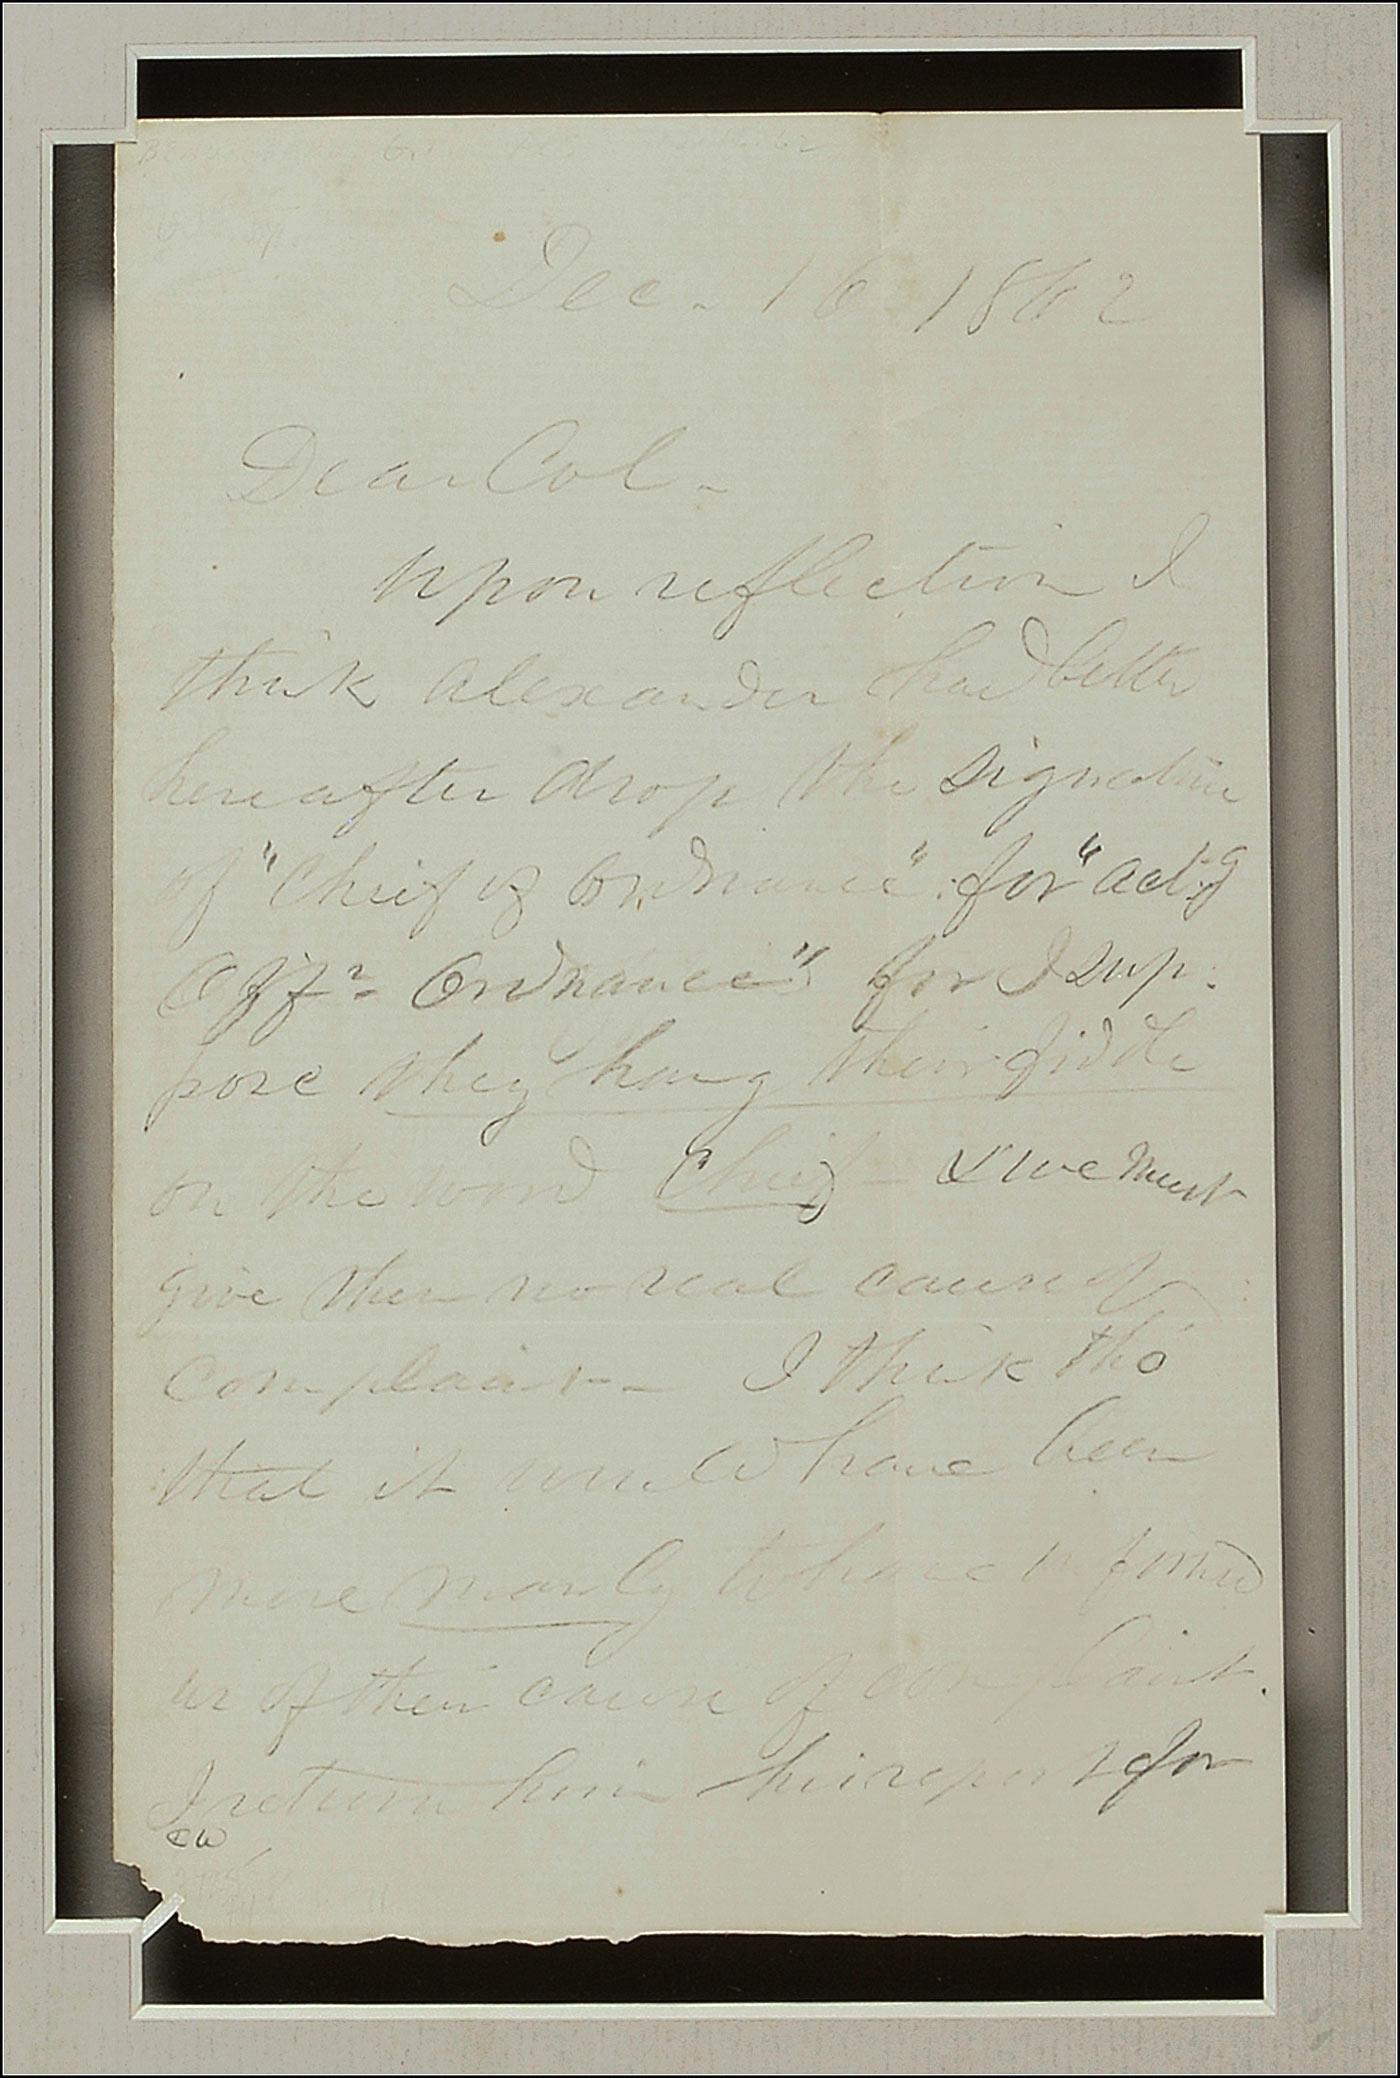 62
Dec. 16 1862
Dear Col -
Upon reflection I
think Alexander had better
hereafter drop the signature
of "Chief of Ordnance" for "actg
Offr. Ordnance" for I sup:
pose they hang their fiddle
on the word Chief - & we must
give them no real cause of
complaint - I think tho'
that it would have been
more manly to have informed
us of their cause of complaint.
I return him his report for
CW